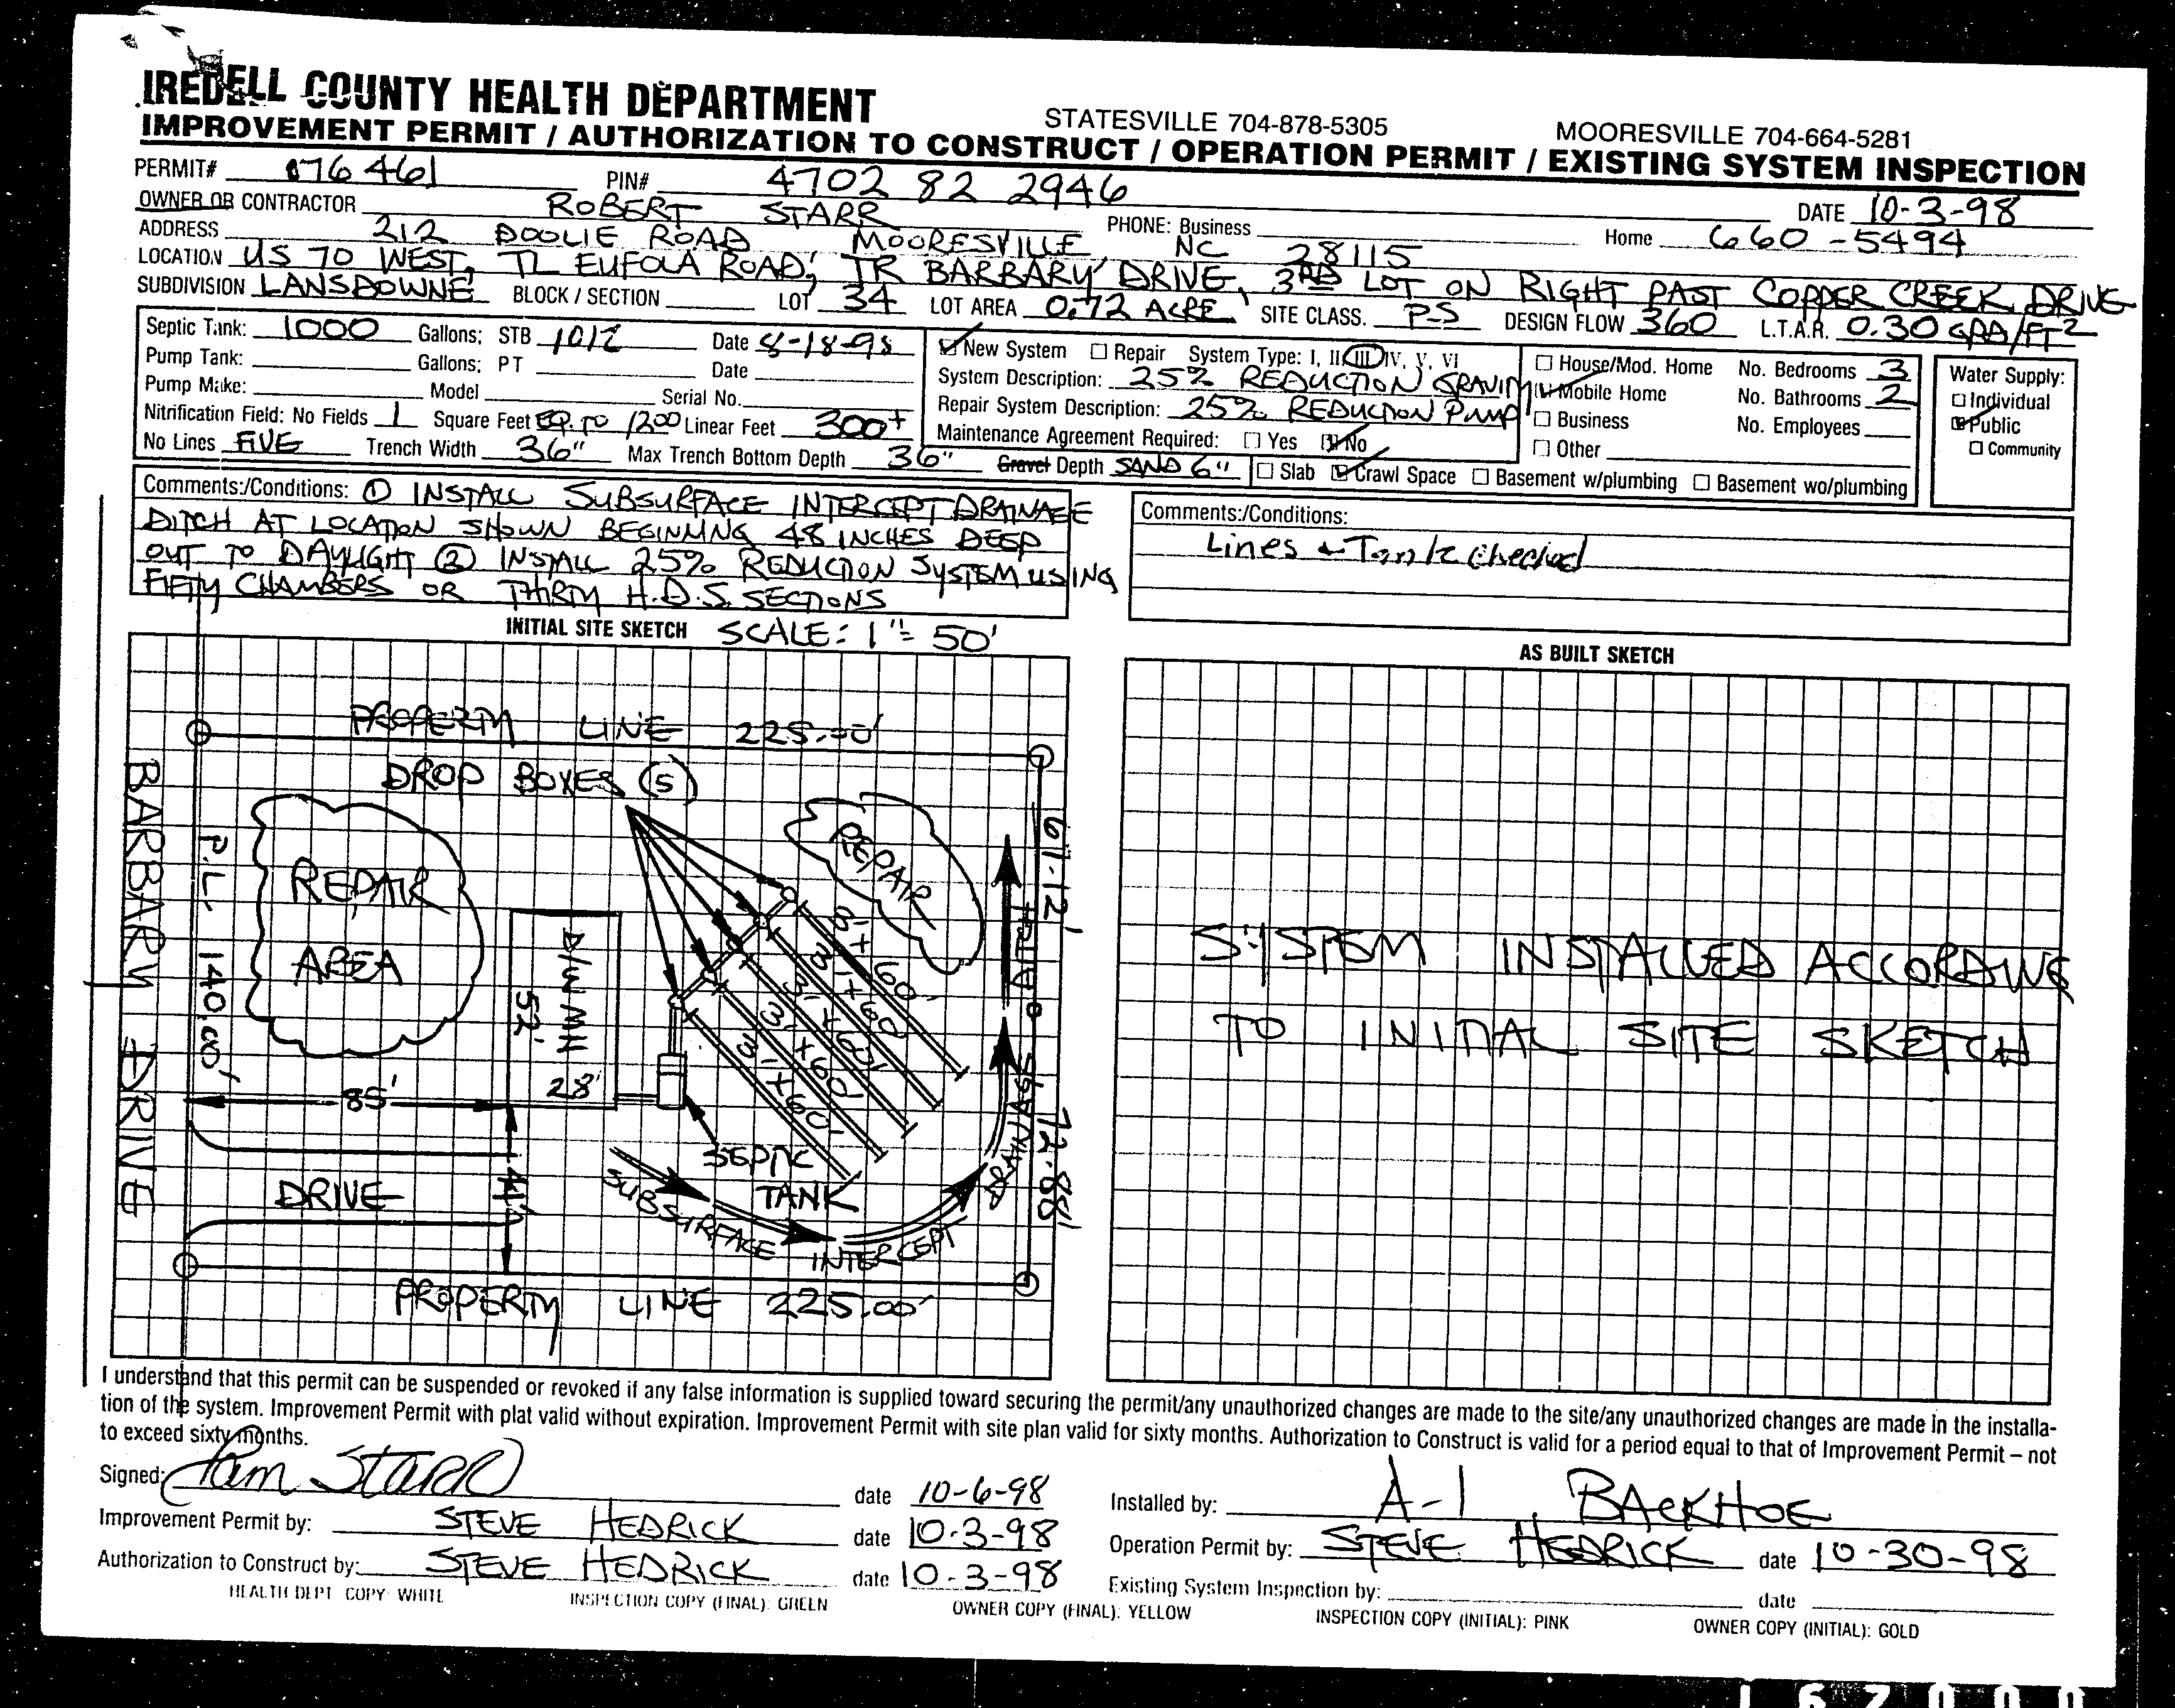 IREDELL COUNTY HEALTH DEPARTMENT STATESVILLE 704-878-5305 MOORESVILLE 704-664-5281
IMPROVEMENT PERMIT / AUTHORIZATION TO CONSTRUCT / OPERATION PERMIT / EXISTING SYSTEM INSPECTION
PERMIT# 076461 PIN# 4702 82 2946 DATE 10-3-98
OWNER OR CONTRACTOR ROBERT STARR PHONE: Business Home 660-5494
ADDRESS 212 DOOLIE ROAD MOORESVILLE NC 28115
LOCATION US 70 WEST, TL EUFOLA ROAD, TR BARBARY DRIVE, 3RD LOT ON RIGHT PAST COPPER CREEK DRIVE
SUBDIVISION LANSDOWNE BLOCK / SECTION LOT 34 LOT AREA 0.72 ACRE SITE CLASS. P-S DESIGN FLOW 360 L.T.A.R. 0.30 GPD/FT2
Septic Tank: 1000 Gallons; STB 1012 Date 8-18-98
Pump Tank: Gallons; PT Date
Pump Make: Model Serial No.
Nitrification Field: No Fields 1 Square Feet EQ. TO 1200 Linear Feet 300+
No Lines FIVE Trench Width 36" Max Trench Bottom Depth 36" Gravel Depth SAND 6"
New System Repair System Type: I, II, III, IV, V, VI
System Description: 25% REDUCTION GRAVITY
Repair System Description: 25% REDUCTION PUMP
Maintenance Agreement Required: Yes No
Slab Crawl Space Basement w/plumbing Basement wo/plumbing
House/Mod. Home No. Bedrooms 3
Mobile Home No. Bathrooms 2
Business No. Employees
Other
Water Supply:
Individual
Public
Community
Comments:/Conditions: ① INSTALL SUBSURFACE INTERCEPT DRAINAGE
DITCH AT LOCATION SHOWN BEGINNING 48 INCHES DEEP
OUT TO DAYLIGHT ② INSTALL 25% REDUCTION SYSTEM USING
FIFTY CHAMBERS OR THIRTY H.D.S. SECTIONS
Comments:/Conditions:
Lines & Tank Checked
INITIAL SITE SKETCH SCALE: 1"= 50'
PROPERTY LINE 225.00'
DROP BOXES (5)
BARBARY DRIVE
P.L. 140.00'
REPAIR
AREA
REPAIR
D/W MH
52'
28'
3'+60'
3'+60'
3'+60'
3'+60'
3'+60'
67.12'
72.88'
85'
41'
DRIVE
SEPTIC
TANK
SUBSURFACE INTERCEPT DRAINAGE DITCH
PROPERTY LINE 225.00'
AS BUILT SKETCH
SYSTEM INSTALLED ACCORDING
TO INITIAL SITE SKETCH
I understand that this permit can be suspended or revoked if any false information is supplied toward securing the permit/any unauthorized changes are made to the site/any unauthorized changes are made in the installa-
tion of the system. Improvement Permit with plat valid without expiration. Improvement Permit with site plan valid for sixty months. Authorization to Construct is valid for a period equal to that of Improvement Permit – not
to exceed sixty months.
Signed: Pam Starr date 10-6-98
Improvement Permit by: STEVE HEDRICK date 10-3-98
Authorization to Construct by: STEVE HEDRICK date 10-3-98
Installed by: A-1 BACKHOE
Operation Permit by: STEVE HEDRICK date 10-30-98
Existing System Inspection by: date
HEALTH DEPT COPY: WHITE INSPECTION COPY (FINAL): GREEN OWNER COPY (FINAL): YELLOW INSPECTION COPY (INITIAL): PINK OWNER COPY (INITIAL): GOLD